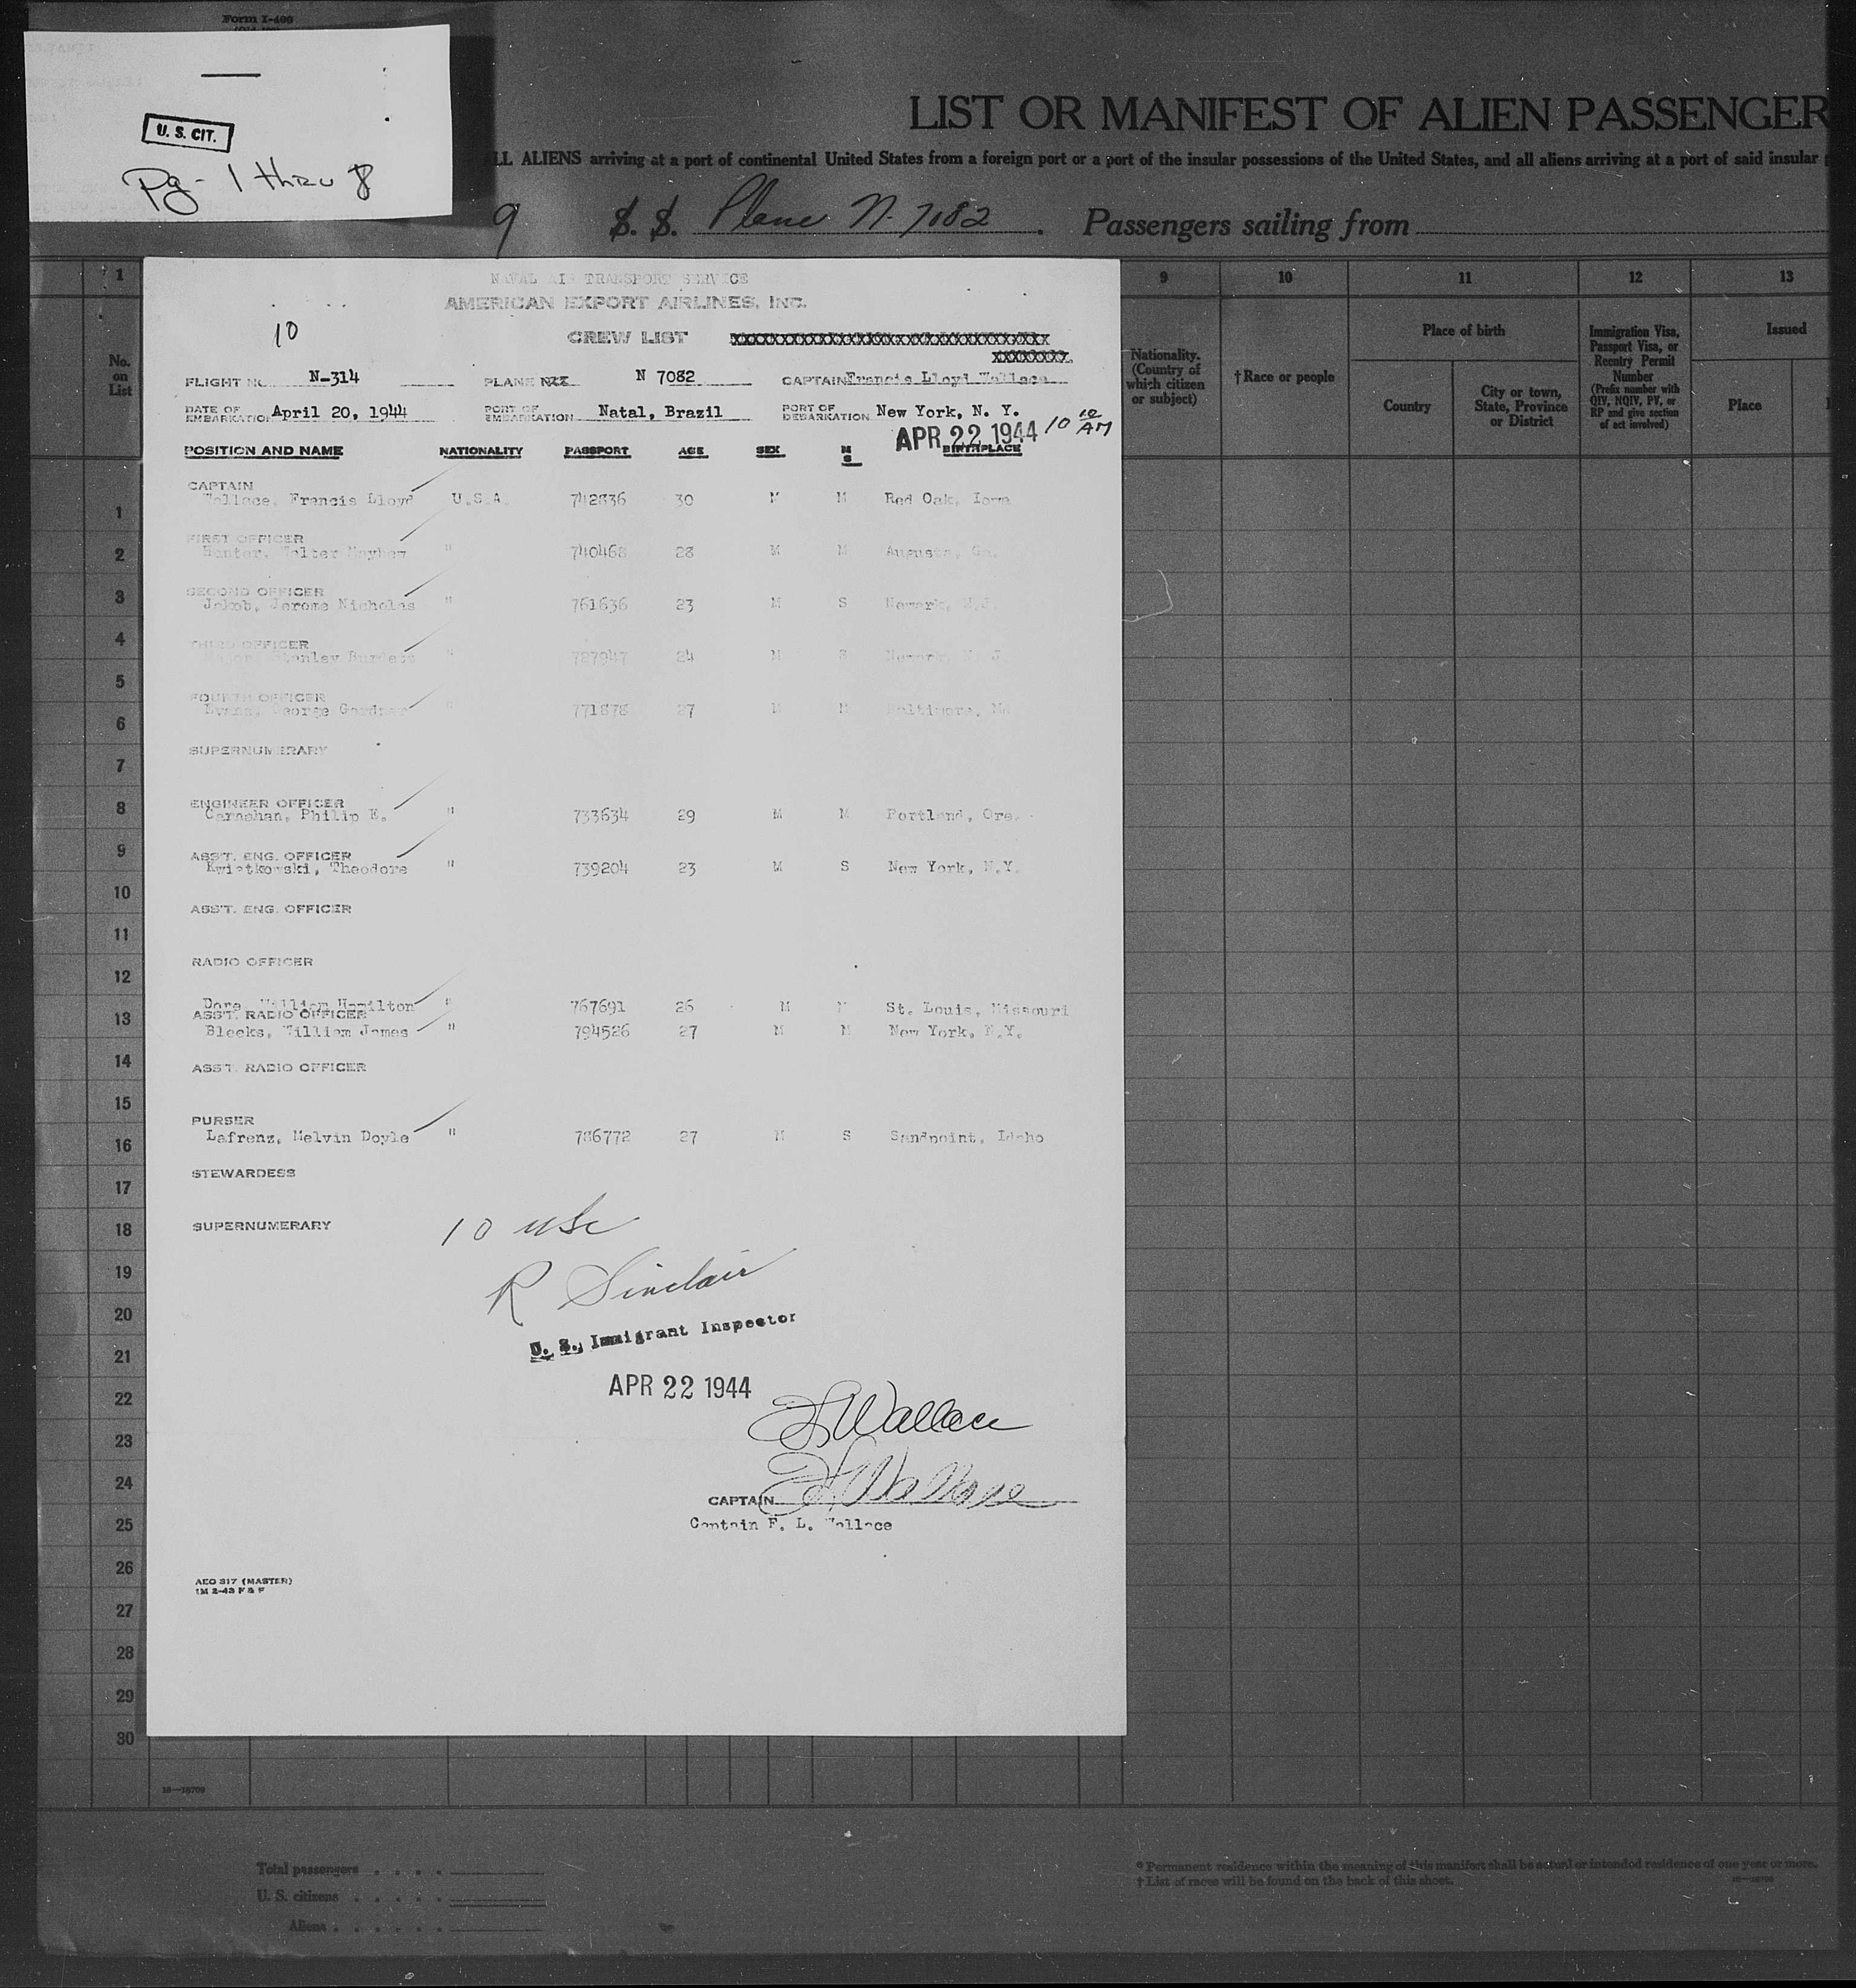 Form I-400
U. S. CIT.
Pg- 1 thru 8
LIST OR MANIFEST OF ALIEN PASSENGER
ALL ALIENS arriving at a port of continental United States from a foreign port or a port of the insular possessions of the United States, and all aliens arriving at a port of said insular
9 S. S. Plane N-7082. Passengers sailing from
1 9 10 11 12 13
No. on List
Nationality. (Country of which citizen or subject)
†Race or people
Place of birth
Country
City or town, State, Province or District
Immigration Visa, Passport Visa, or Reentry Permit Number (Prefix number with QIV, NQIV, PV, or RP and give section of act involved)
Issued
Place
NAVAL AIR TRANSPORT SERVICE
AMERICAN EXPORT AIRLINES, INC.
10
CREW LIST
FLIGHT NO. N-314 PLANE N 7082 CAPTAIN Francis Lloyd Wallace
DATE OF EMBARKATION April 20, 1944 PORT OF EMBARKATION Natal, Brazil PORT OF DEBARKATION New York, N. Y.
APR 22 1944 10 10 AM
POSITION AND NAME NATIONALITY PASSPORT AGE SEX M S BIRTHPLACE
CAPTAIN
Wallace, Francis Lloyd U.S.A. 742836 30 M M Red Oak, Iowa
FIRST OFFICER
Hunter, Walter Mayhew " 740468 28 M M Augusta, Ga.
SECOND OFFICER
Jakob, Jerome Nicholas " 761636 23 M S Newark, N.J.
THIRD OFFICER
Stanley " 787947 24 M S Newark, N. J.
FOURTH OFFICER
Evans, George Gardner " 771878 27 M M Baltimore, Md
SUPERNUMERARY
ENGINEER OFFICER
Carnahan, Philip E. " 733634 29 M M Portland, Ore.
ASS'T. ENG. OFFICER
Kwiatkowski, Theodore " 739204 23 M S New York, N.Y.
ASS'T. ENG. OFFICER
RADIO OFFICER
Dore, William Hamilton " 767691 26 M M St. Louis, Missouri
ASS'T. RADIO OFFICER
Bleeks, William James " 794526 27 M M New York, N.Y.
ASS'T. RADIO OFFICER
PURSER
Lafrenz, Melvin Doyle " 786772 27 M S Sandpoint, Idaho
STEWARDESS
SUPERNUMERARY
10 usc
R Sinclair
U. S. Immigrant Inspector
APR 22 1944
F L Wallace
F L Wallace
CAPTAIN
Captain F. L. Wallace
AEO 317 (MASTER)
1M 2-43 F & F
1
2
3
4
5
6
7
8
9
10
11
12
13
14
15
16
17
18
19
20
21
22
23
24
25
26
27
28
29
30
16—18709
Total passengers
U. S. citizens
Aliens
* Permanent residence within the meaning of this manifest shall be actual or intended residence of one year or more.
† List of races will be found on the back of this sheet.
16—18709